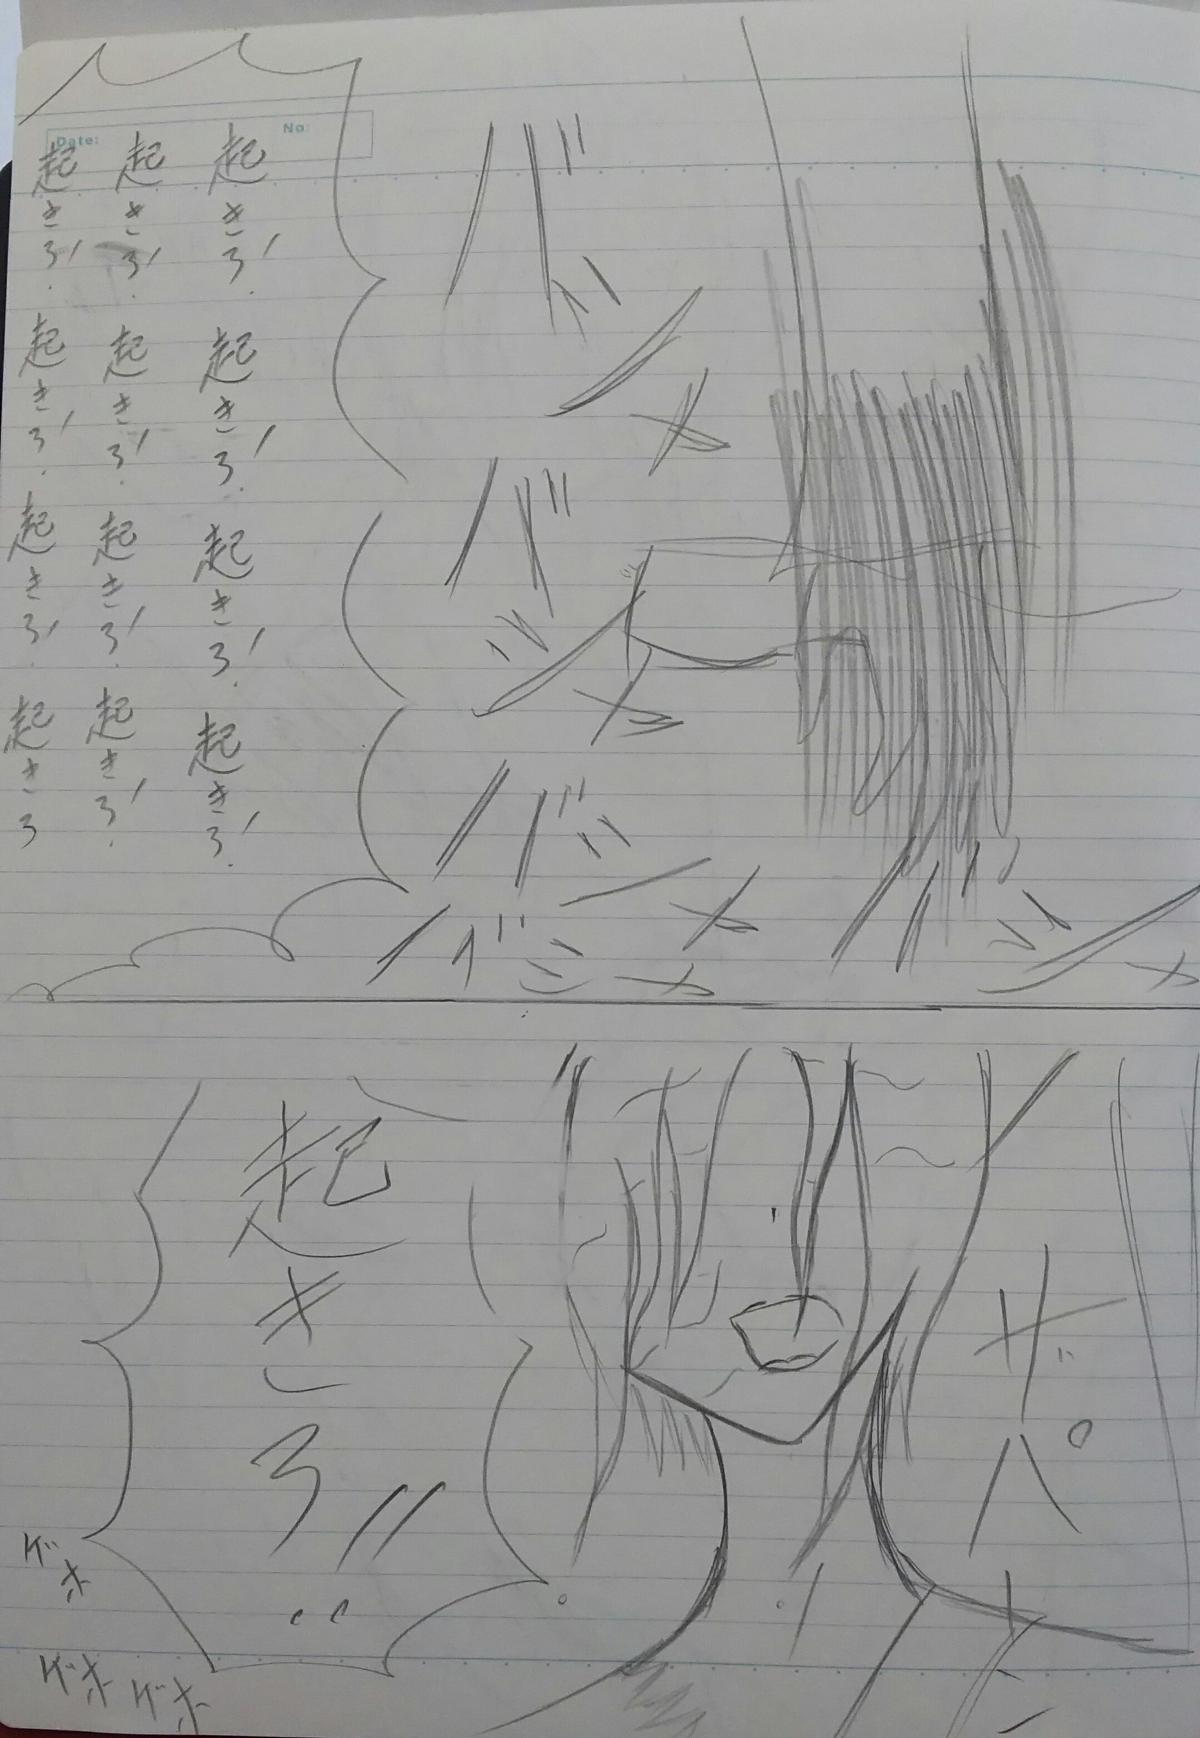 Date:
No:
起きろ!
起きろ!
起きろ!
起きろ!
起きろ!
起きろ!
起きろ!
起きろ!
起きろ!
起きろ!
起きろ!
起きろ
バシャ
バシャ
バシャ
バシャ
バシャ
起きろ!!
ゲホ
ゲホ
ゲホ